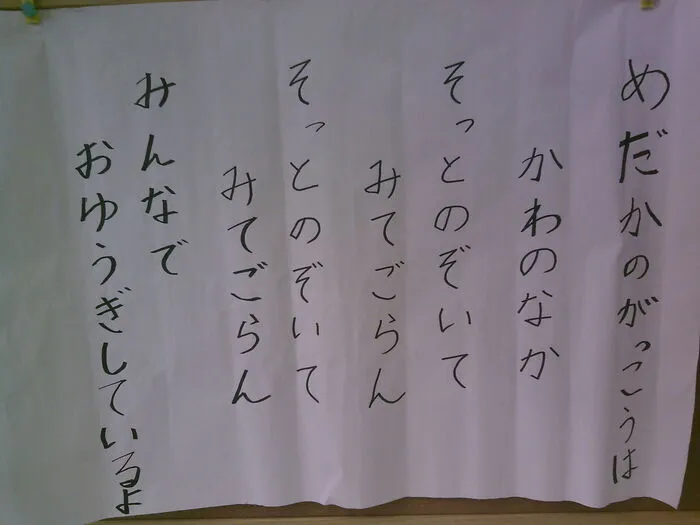 めだかのがっこうは
かわのなか
そっとのぞいて
みてごらん
そっとのぞいて
みてごらん
みんなで
おゆうぎしているよ